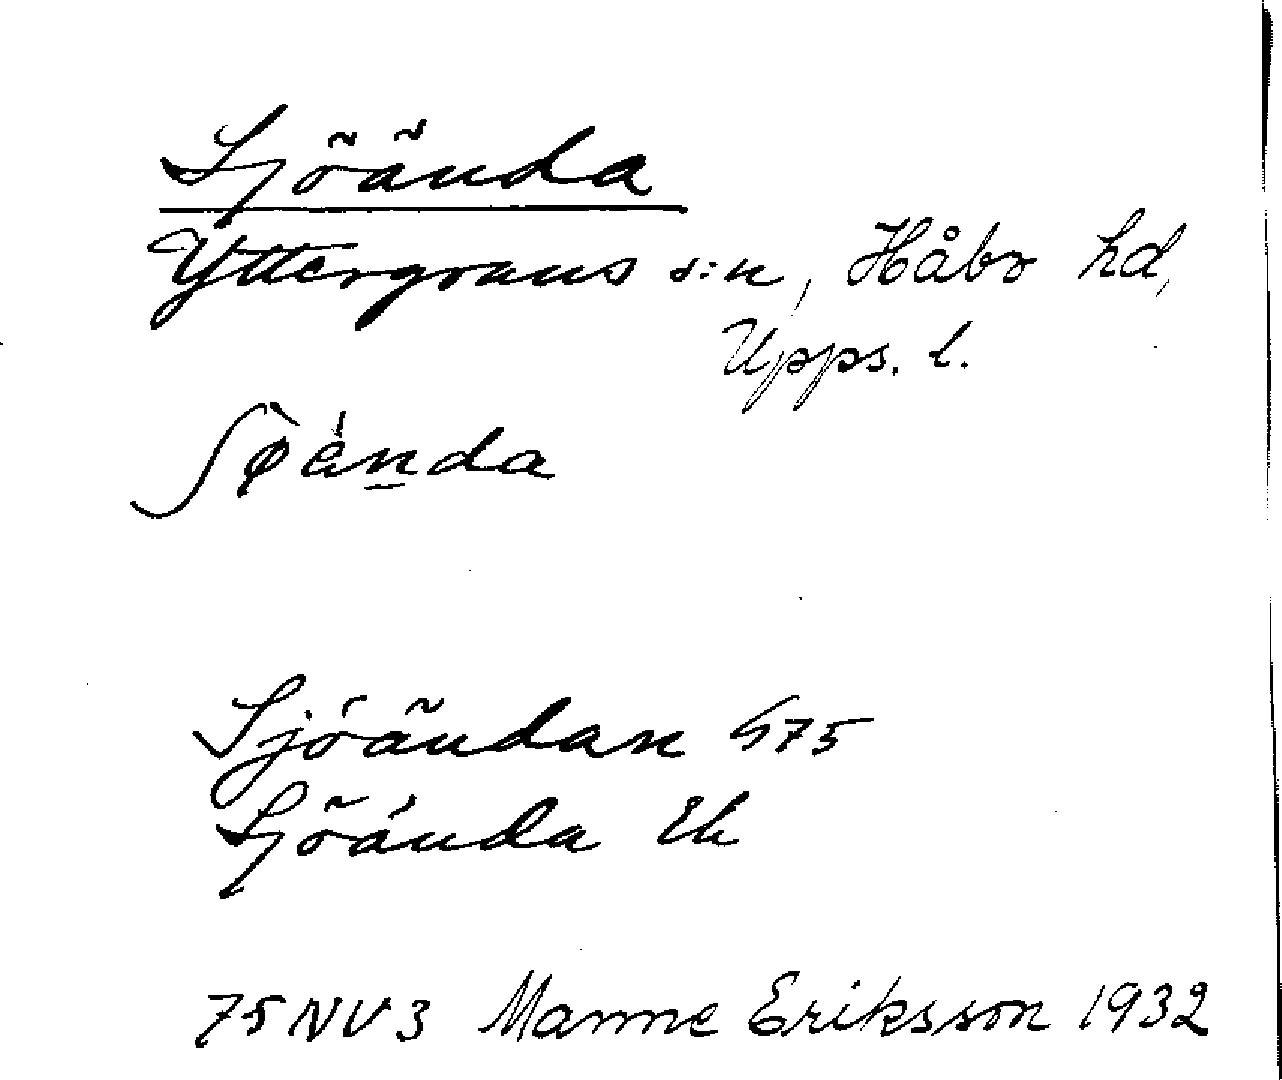 Sjöända
Yttergrans s:n, Håbo hd,
Upps. l.
ʃø̀ánda
Sjöändan G75
Sjöända Ek
75NV3 Manne Eriksson 1932